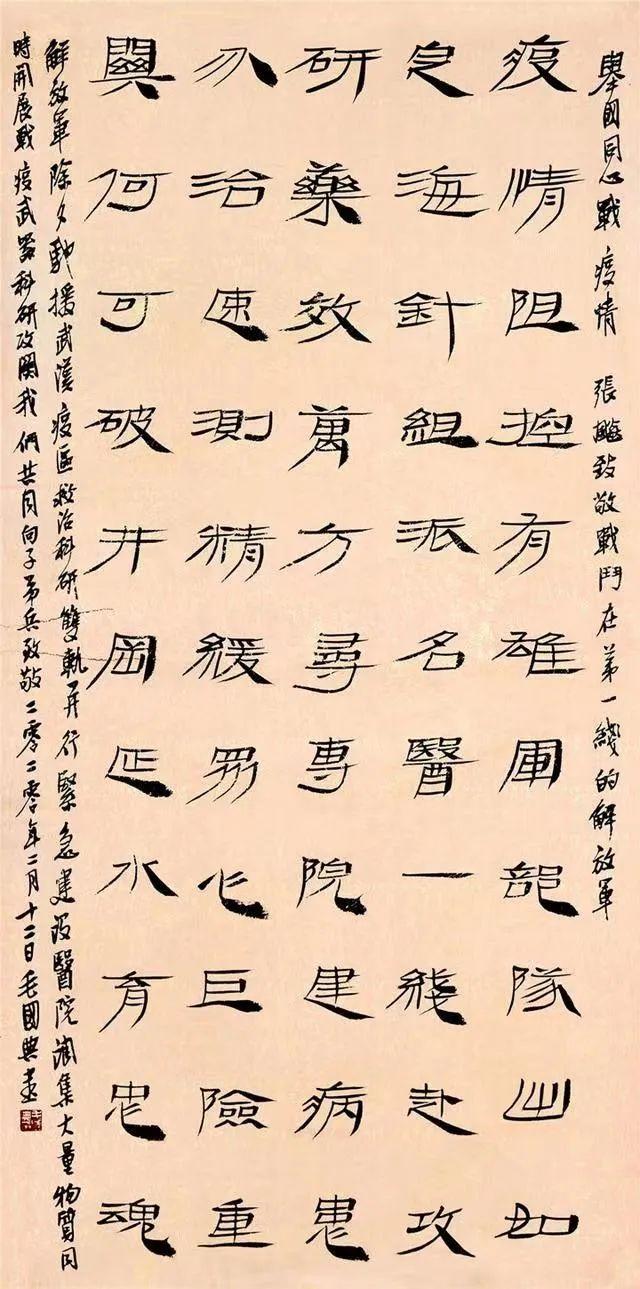 舉國同心戰疫情 張致敬戰鬥在第一綫的解放軍
疫情阻控有雄軍部隊出如
定海針組派名醫一綫赴攻
研藥效萬方尋專院建病患
分治速測精緩眾心巨險重
關何可破井岡延水育忠魂
解放軍除夕馳援武漢疫區救治科研雙軌并行緊急建設醫院調集大量物質同
時開展戰疫武器科研攻關我們共同向子弟兵致敬二零二零年二月十二日毛國典書